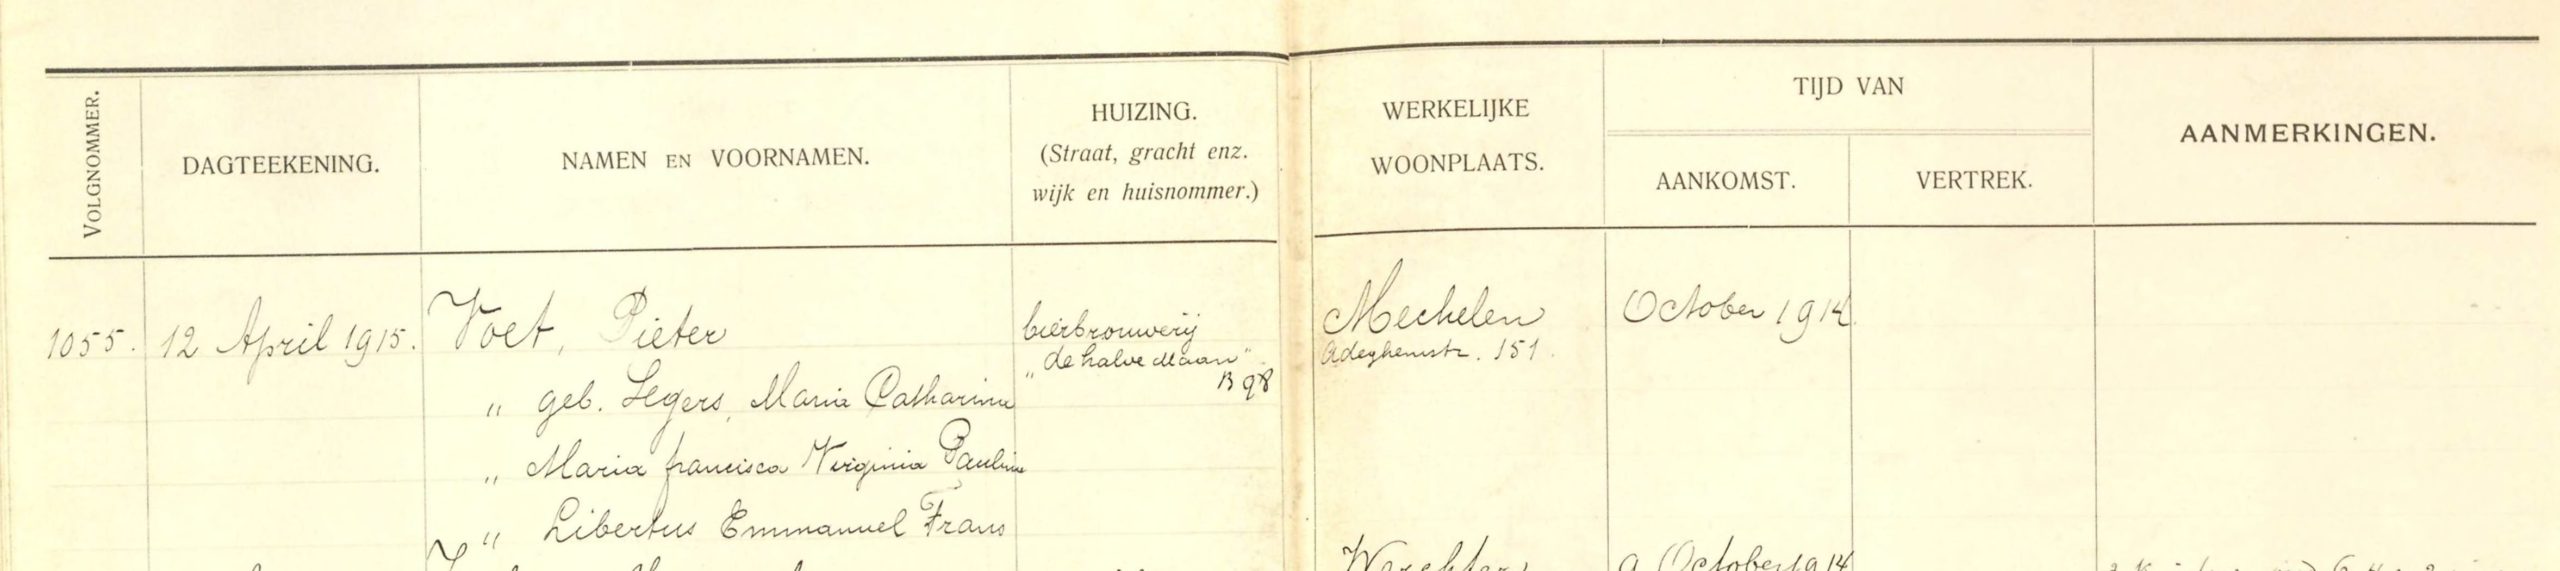 VOLGNOMMER.
DAGTEEKENING.
NAMEN EN VOORNAMEN.
HUIZING.
(Straat, gracht enz.
wijk en huisnommer.)
WERKELIJKE
WOONPLAATS.
TIJD VAN
AANKOMST.
VERTREK.
AANMERKINGEN.
1055. 12 April 1915. Voet, Pieter
bierbrouwerij
"de halve Maan"
B 98
Mechelen
Adeghemstr. 151.
October 1914
" geb. Segers, Maria Catharina
" Maria francisca Virginia Paulina
" Libertus Emmanuel Frans
Werchter
9 October 1914